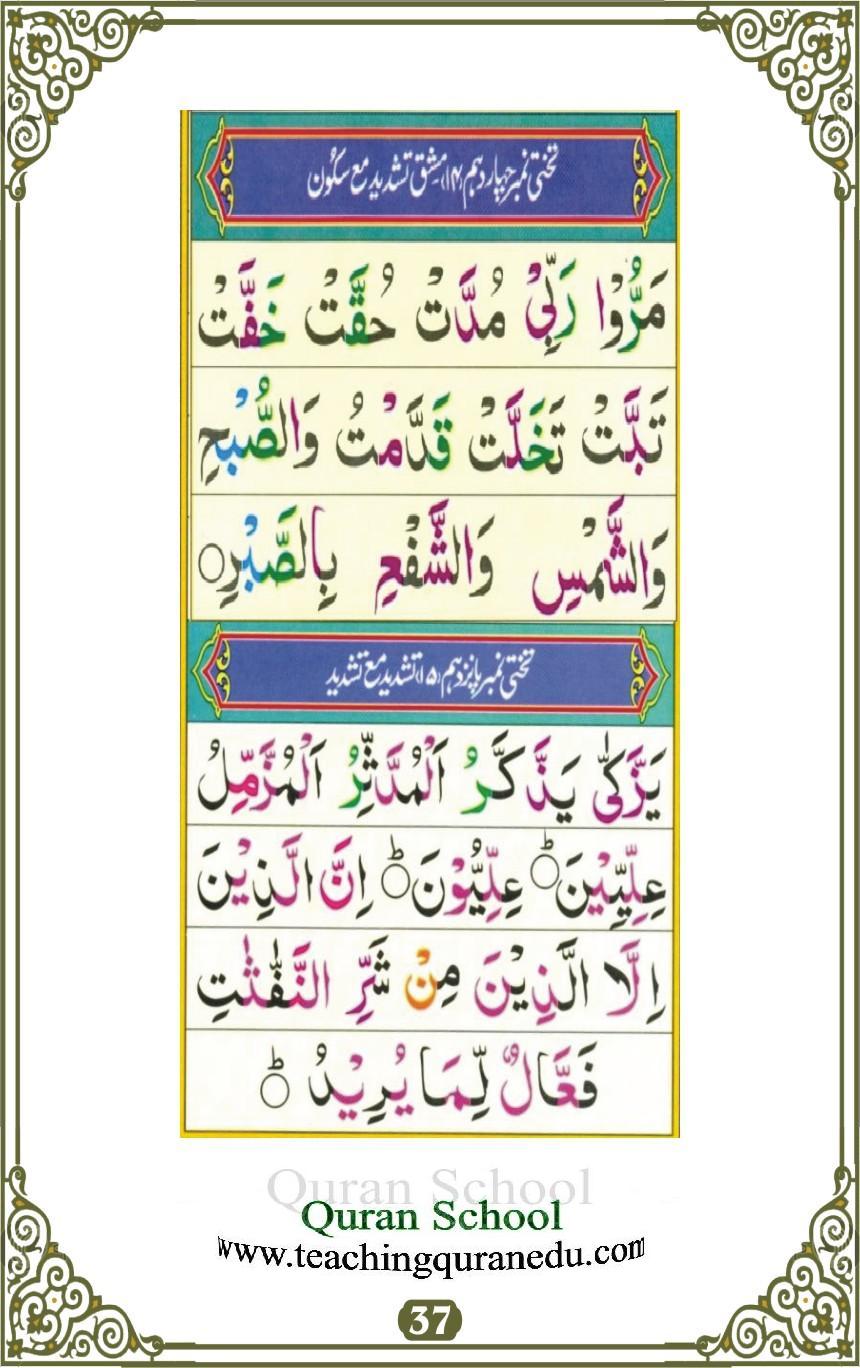 تختی نمبر چہاردہم (۱۴) مشق تشدید مع سکون
مَرُّوْا رَبِّیْ مُدَّتْ حُقَّتْ خَفَّتْ
تَبَّتْ تَخَلَّتْ قَدَّمْتُ وَالصُّبْحِ
وَالشَّمْسِ وَالشَّفْعِ بِالصَّبْرِ○
تختی نمبر پانزدہم (۱۵) تشدید مع تشدید
یَزَّکّٰی یَذَّکَّرُ اَلْمُدَّثِّرُ اَلْمُزَّمِّلُ
عِلِّیِّیْنَ○ؕ عِلِّیُّوْنَ○ؕ اِنَّ الَّذِیْنَ
اِلَّا الَّذِیْنَ مِنْ شَرِّ النَّفّٰثٰتِ
فَعَّالٌ لِّمَا یُرِیْدُ○ؕ
Quran School
Quran School
www.teachingquranedu.com
37